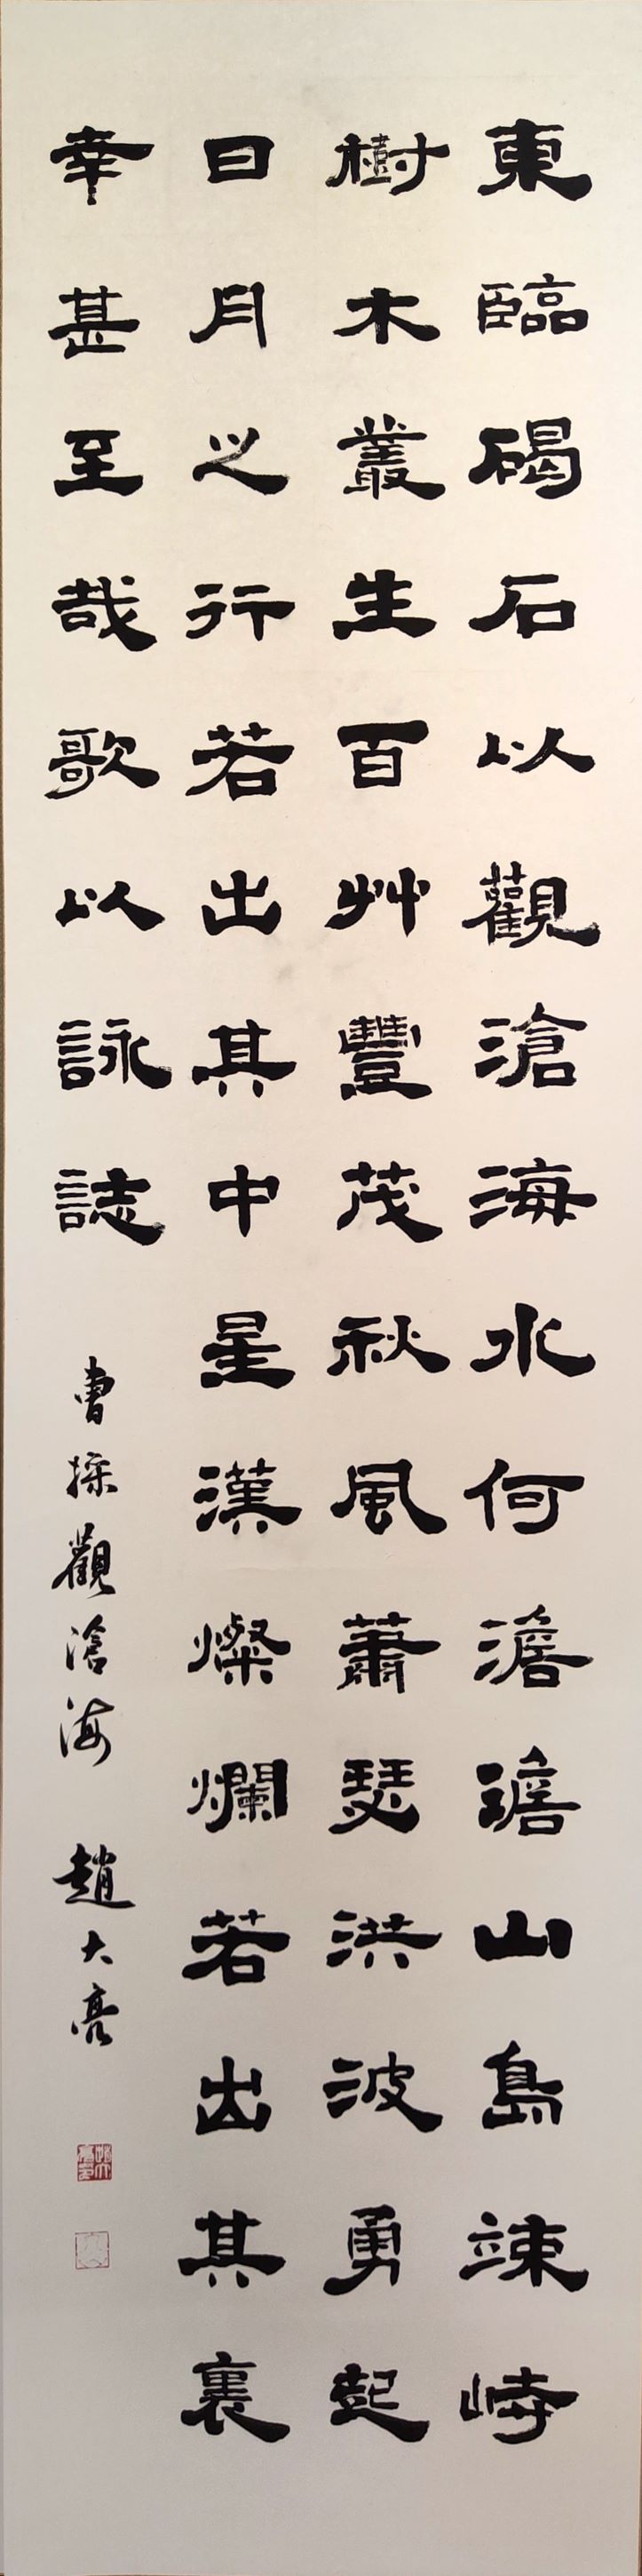 東臨碣石以觀滄海水何澹澹山島竦峙
樹木叢生百艸豐茂秋風蕭瑟洪波勇起
日月之行若出其中星漢燦爛若出其裏
幸甚至哉歌以詠誌
曹操觀滄海 趙大亮